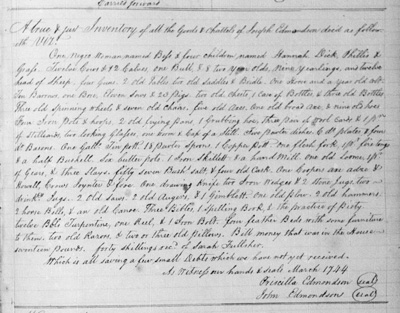 Carried forward
A true & just Inventory of all the Goods & Chattels of Joseph Edmondson dec'd as follow
eth Viz.
One Negro Woman named Bess & four children named Hannah Dick Phillis &
Twelve Cows & 12 Calves, one Bull, 8 & two year olds, Nine yearlings, and twelve
head of Sheep four Guns. 2 old Table two old Saddles & Bridle. One Horse and a year old
ten Barrows one Bore, Eleven Sows & 23 pigs. two old Chests, 1 Case of Bottles & three old Bottles
Three old Spinning wheels & seven old chairs, five old Axes. One old broad axe & nine old hoes
Four Iron Pots & hooks, 2 old frying pans, 1 Grubbing hoe, three pair of wool Cards & 1 pr.
of Stilliards, two looking Glasses, one horn & Cap of a Still. Two pewter dishes 6 do plates & four
do Basons. One Gall. Pott 18 pewter Spoons 1 Copper Pott one flesh fork,
& a half Bushell. Six butter pots. 1 Iron Skillett & a hand Mill, one old
of Gears, & three Slays, fifty seven Bush. Salt & four old Cask. One Coopers an adze &
howell, Crows Joynter & fore. One drawing knife two Iron Wedges & 2 stone Jugs, two
drink. Jugs. 2 old Saws 2 old Augers, & 1 Gimblett. One old plow. 2 old hammers
2 home Bells, & an old Canoe Three Bibles, 1 spelling Book, & the practice of Piety
twelve Bbls Turpentine, one Reel, & 1 Wyn Bolt. four feather Beds with some furniture
to them: two old Razors, & two or three old Pillows. Bill money that was in the House
seventeen pounds. forty shillings rec'd of Sarah Fulleher.
Which is all saving a few small Debts which we have not yet received.
As Witness our hands & seals March 1744
Priscilla Edmondson (seal)
John Edmondson (seal)